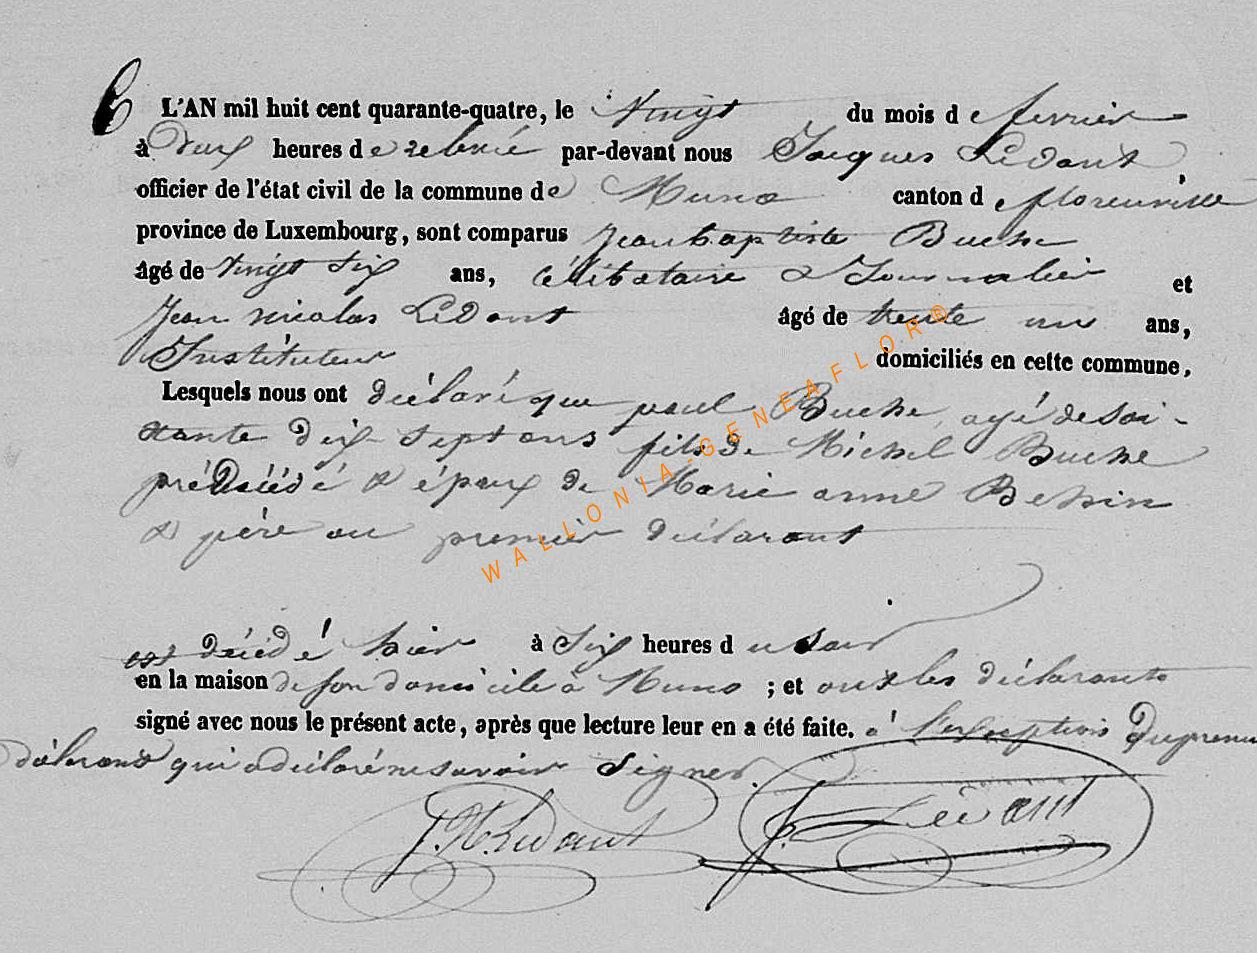 L'AN mil huit cent quarante-quatre, le vingt du mois de fevrier
à deux heures de relevé par-devant nous Jacques Lédant,
officier de l'état civil de la commune de Muno canton de florenville
province de Luxembourg, sont comparus Jean baptiste Buche
âgé de vingt six ans, célibataire & Journalier et
Jean nicolas Lédant âgé de trente un ans,
Instituteur domiciliés en cette commune,
Lesquels nous ont déclaré que paul Buche, agé de soi-
xante dix sept ans fils de Michel Buche
prédécédé & époux de Marie anne
& père au premier déclarant
est décédé hier à six heures du soir
en la maison de son domicile à Muno ; et ont les déclarants
signé avec nous le présent acte, après que lecture leur en a été faite. à l'exception du premier
déclarant qui a déclaré ne savoir signer.
J. N. Lédant J. Lédant
WALLONIA-GENEAFLOR®